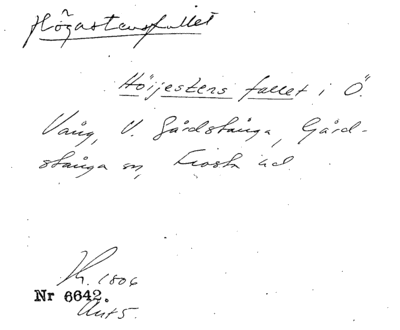 Högastensfallet
Höijestens fallet i Ö.
Vång, V. Gårdstånga, Gård-
stånga sn, Frosta hd
1806
Nr 6642.